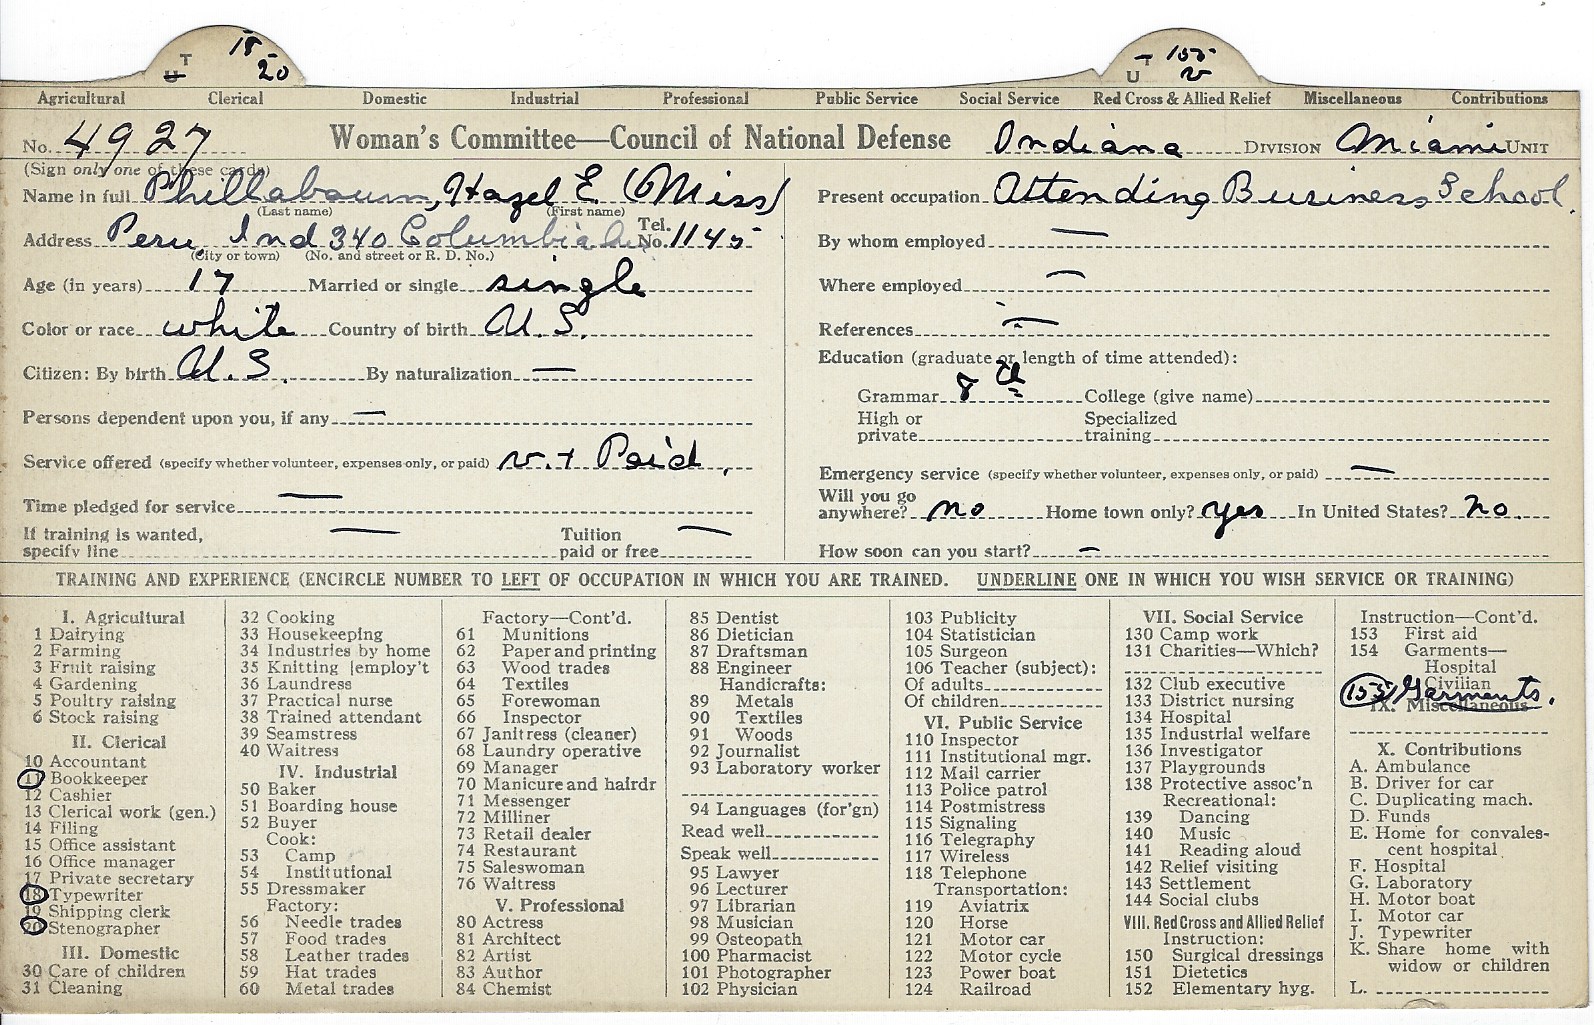 T 18-20
U
T 155
U v
Agricultural Clerical Domestic Industrial Professional Public Service Social Service Red Cross & Allied Relief Miscellaneous Contributions
No. 4927 Woman's Committee—Council of National Defense Indiana DIVISION Miami UNIT
(Sign only one of these cards)
Name in full Phillabaum, Hazel E. (Miss)
(Last name) (First name)
Address Peru, Ind 340 Columbia Ave Tel. No. 1145
(City or town) (No. and street or R. D. No.)
Age (in years) 17 Married or single single
Color or race white Country of birth U. S.
Citizen: By birth U. S. By naturalization —
Persons dependent upon you, if any —
Service offered (specify whether volunteer, expenses only, or paid) v. + Paid.
Time pledged for service —
If training is wanted, specify line — Tuition paid or free —
Present occupation Attending Business School.
By whom employed —
Where employed —
References —
Education (graduate or length of time attended):
Grammar 8th College (give name)
High or private Specialized training
Emergency service (specify whether volunteer, expenses only, or paid) —
Will you go anywhere? no Home town only? yes In United States? no.
How soon can you start? —
TRAINING AND EXPERIENCE (ENCIRCLE NUMBER TO LEFT OF OCCUPATION IN WHICH YOU ARE TRAINED. UNDERLINE ONE IN WHICH YOU WISH SERVICE OR TRAINING)
I. Agricultural
1 Dairying
2 Farming
3 Fruit raising
4 Gardening
5 Poultry raising
6 Stock raising
II. Clerical
10 Accountant
11 Bookkeeper
12 Cashier
13 Clerical work (gen.)
14 Filing
15 Office assistant
16 Office manager
17 Private secretary
18 Typewriter
19 Shipping clerk
20 Stenographer
III. Domestic
30 Care of children
31 Cleaning
32 Cooking
33 Housekeeping
34 Industries by home
35 Knitting [employ't
36 Laundress
37 Practical nurse
38 Trained attendant
39 Seamstress
40 Waitress
IV. Industrial
50 Baker
51 Boarding house
52 Buyer
Cook:
53 Camp
54 Institutional
55 Dressmaker
Factory:
56 Needle trades
57 Food trades
58 Leather trades
59 Hat trades
60 Metal trades
Factory—Cont'd.
61 Munitions
62 Paper and printing
63 Wood trades
64 Textiles
65 Forewoman
66 Inspector
67 Janitress (cleaner)
68 Laundry operative
69 Manager
70 Manicure and hairdr
71 Messenger
72 Milliner
73 Retail dealer
74 Restaurant
75 Saleswoman
76 Waitress
V. Professional
80 Actress
81 Architect
82 Artist
83 Author
84 Chemist
85 Dentist
86 Dietician
87 Draftsman
88 Engineer
Handicrafts:
89 Metals
90 Textiles
91 Woods
92 Journalist
93 Laboratory worker
94 Languages (for'gn)
Read well
Speak well
95 Lawyer
96 Lecturer
97 Librarian
98 Musician
99 Osteopath
100 Pharmacist
101 Photographer
102 Physician
103 Publicity
104 Statistician
105 Surgeon
106 Teacher (subject):
Of adults
Of children
VI. Public Service
110 Inspector
111 Institutional mgr.
112 Mail carrier
113 Police patrol
114 Postmistress
115 Signaling
116 Telegraphy
117 Wireless
118 Telephone
Transportation:
119 Aviatrix
120 Horse
121 Motor car
122 Motor cycle
123 Power boat
124 Railroad
VII. Social Service
130 Camp work
131 Charities—Which?
132 Club executive
133 District nursing
134 Hospital
135 Industrial welfare
136 Investigator
137 Playgrounds
138 Protective assoc'n
Recreational:
139 Dancing
140 Music
141 Reading aloud
142 Relief visiting
143 Settlement
144 Social clubs
VIII. Red Cross and Allied Relief
Instruction:
150 Surgical dressings
151 Dietetics
152 Elementary hyg.
Instruction—Cont'd.
153 First aid
154 Garments—
Hospital
Civilian
155 Garments.
IX. Miscellaneous
X. Contributions
A. Ambulance
B. Driver for car
C. Duplicating mach.
D. Funds
E. Home for convales-
cent hospital
F. Hospital
G. Laboratory
H. Motor boat
I. Motor car
J. Typewriter
K. Share home with
widow or children
L.